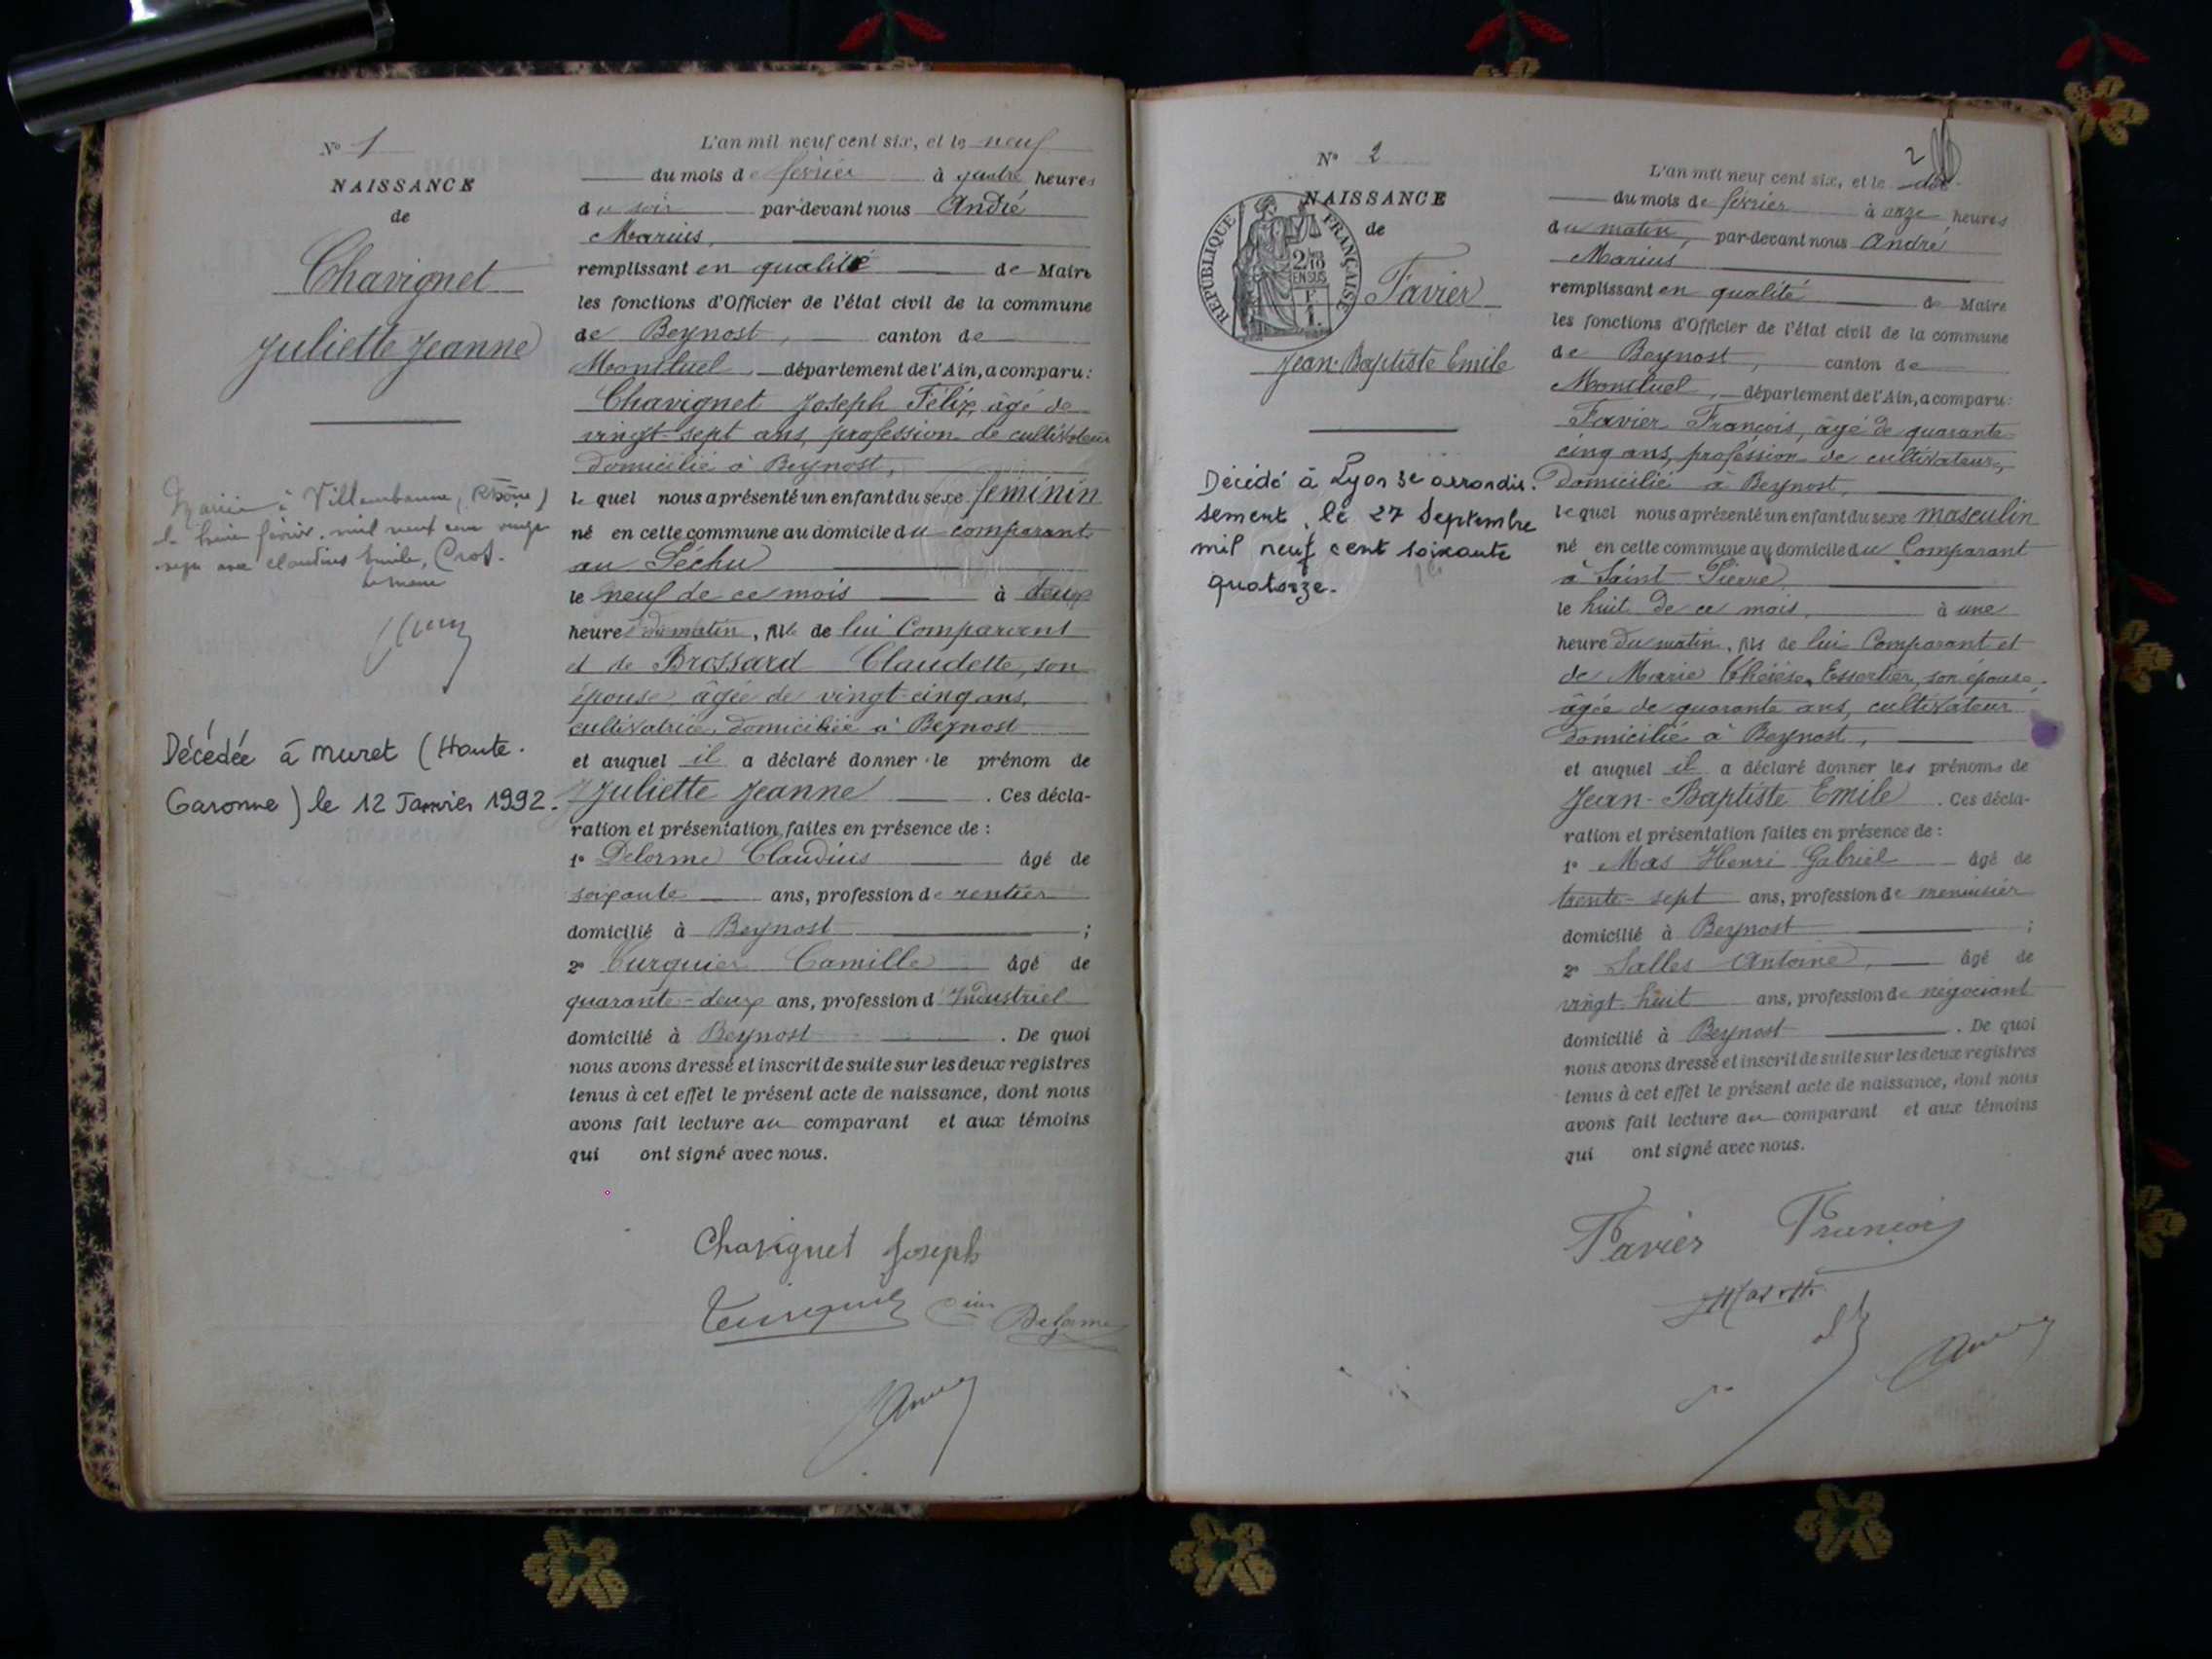 N° 1
NAISSANCE
de
Chavignet
Juliette Jeanne
à Villeurbanne, (Rhône)
février mil neuf cent vingt
avec Claudius Emile, Crot.
Décédée à Muret (Haute-
Garonne) le 12 Janvier 1992.
L'an mil neuf cent six, et le neuf
du mois de février à quatre heures
du soir par-devant nous André
Marius,
remplissant en qualité de Maire
les fonctions d'Officier de l'état civil de la commune
de Beynost, canton de
Montluel, département de l'Ain, a comparu:
Chavignet Joseph Félix, âgé de
vingt-sept ans, profession de cultivateur
domicilié à Beynost,
le quel nous a présenté un enfant du sexe féminin
né en cette commune au domicile du comparant
au Péchu
le neuf de ce mois à deux
heures du matin, fille de lui Comparant
et de Brossard Claudette, son
épouse, âgée de vingt-cinq ans,
cultivatrice, domiciliée à Beynost
et auquel il a déclaré donner le prénom de
Juliette Jeanne. Ces décla-
ration et présentation faites en présence de:
1° Delorme Claudius âgé de
soixante ans, profession de rentier
domicilié à Beynost;
2° Turquier Camille âgé de
quarante-deux ans, profession d'Industriel
domicilié à Beynost. De quoi
nous avons dressé et inscrit de suite sur les deux registres
tenus à cet effet le présent acte de naissance, dont nous
avons fait lecture au comparant et aux témoins
qui ont signé avec nous.
Chavignet Joseph
Delorme
N° 2
NAISSANCE
de
REPUBLIQUE FRANÇAISE
2/10
EN SUS
F.
1.
Favier
Jean-Baptiste Emile
Décédé à Lyon 3e arrondis-
sement, le 27 Septembre
mil neuf cent soixante
quatorze.
2
L'an mil neuf cent six, et le dix
du mois de février à onze heures
du matin, par-devant nous André
Marius
remplissant en qualité de Maire
les fonctions d'Officier de l'état civil de la commune
de Beynost, canton de
Montluel, département de l'Ain, a comparu:
Favier François, âgé de quarante
cinq ans, profession de cultivateur,
domicilié à Beynost,
le quel nous a présenté un enfant du sexe masculin
né en cette commune au domicile du Comparant
à Saint-Pierre
le huit de ce mois, à une
heure du matin, fils de lui Comparant et
de Marie Thérèse, Essertier, son épouse,
âgée de quarante ans, cultivateur
domicilié à Beynost,
et auquel il a déclaré donner les prénoms de
Jean-Baptiste Emile. Ces décla-
ration et présentation faites en présence de:
1° Mas Henri Gabriel âgé de
trente-sept ans, profession de menuisier
domicilié à Beynost;
2° Salles Antoine, âgé de
vingt-huit ans, profession de négociant
domicilié à Beynost. De quoi
nous avons dressé et inscrit de suite sur les deux registres
tenus à cet effet le présent acte de naissance, dont nous
avons fait lecture au comparant et aux témoins
qui ont signé avec nous.
Favier François